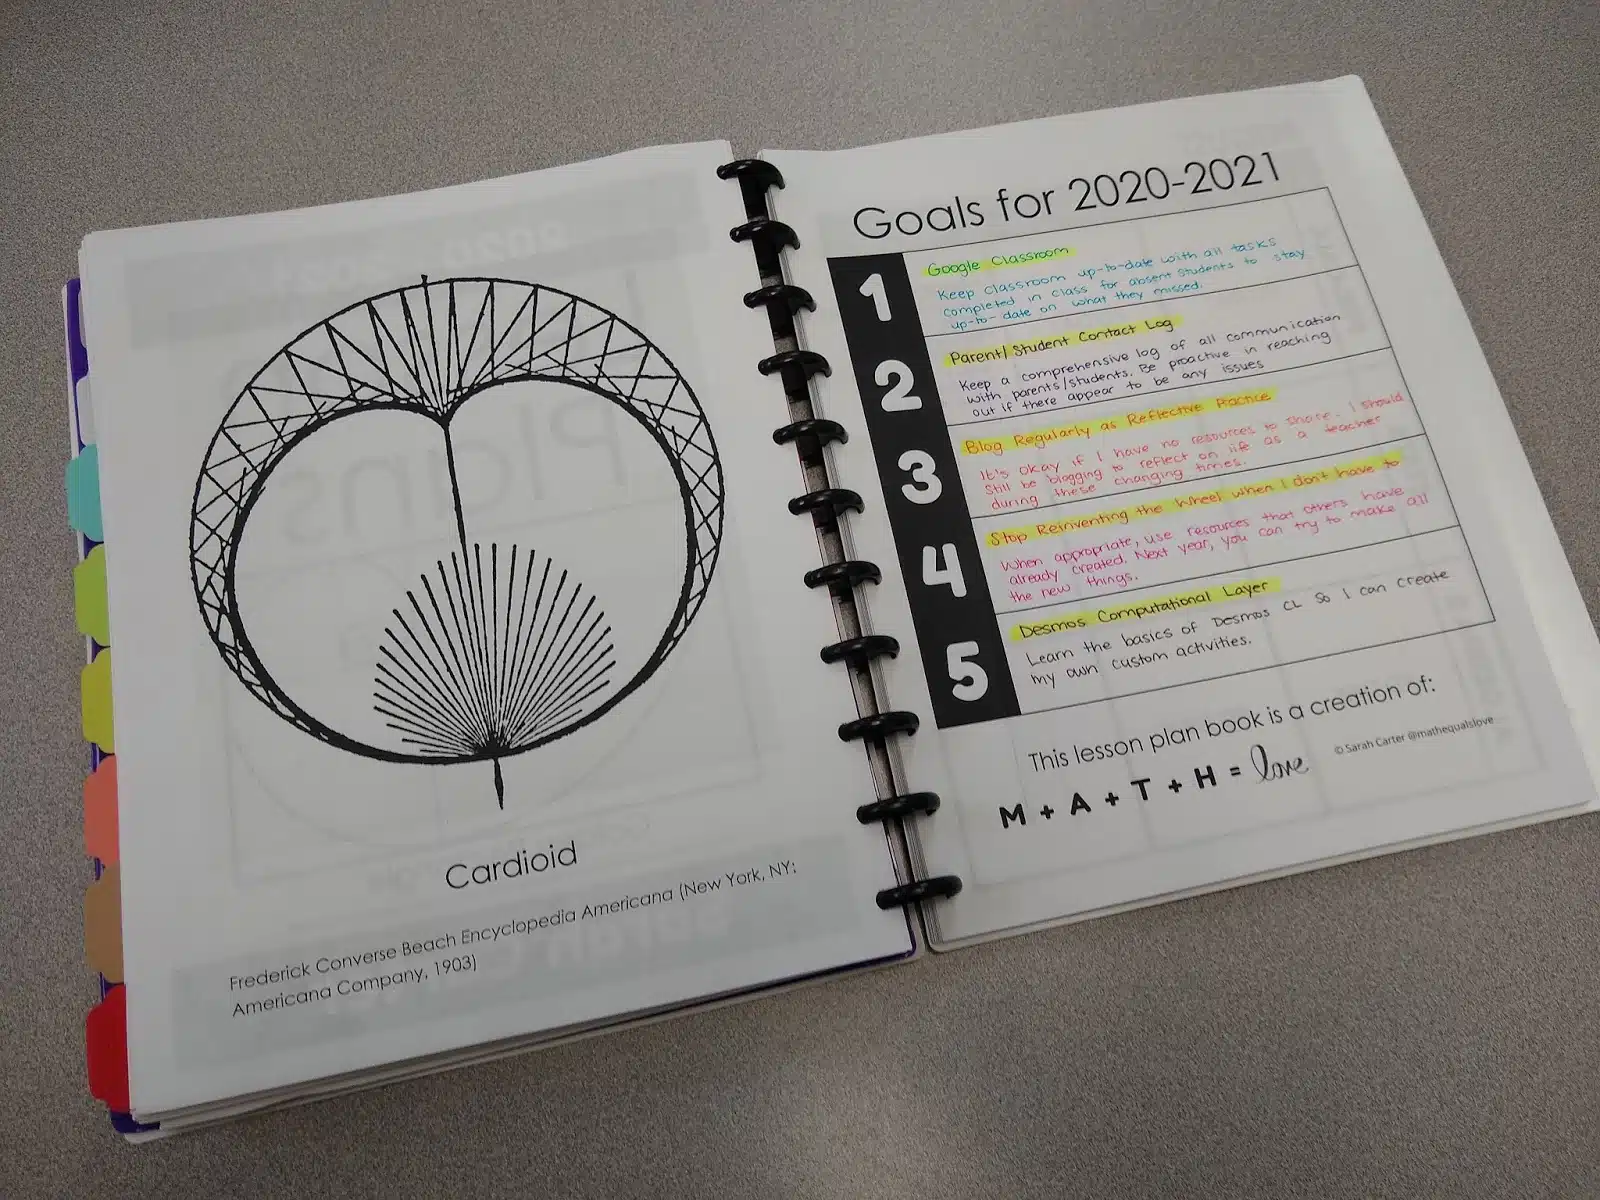 Cardioid
Frederick Converse Beach Encyclopedia Americana (New York, NY:
Americana Company, 1903)
Goals for 2020-2021
1
Google Classroom
Keep classroom up-to-date with all tasks
completed in class for absent students to stay
up-to-date on what they missed.
2
Parent/Student Contact Log
Keep a comprehensive log of all communication
with parents/students. Be proactive in reaching
out if there appear to be any issues
3
Blog Regularly as Reflective Practice
It's okay if I have no resources to share. I should
still be blogging to reflect on life as a teacher
during these changing times.
4
Stop Reinventing the Wheel when I don't have to
When appropriate, use resources that others have
already created. Next year, you can try to make all
the new things.
5
Desmos Computational Layer
Learn the basics of Desmos CL so I can create
my own custom activities.
This lesson plan book is a creation of:
M + A + T + H = love
© Sarah Carter @mathequalslove